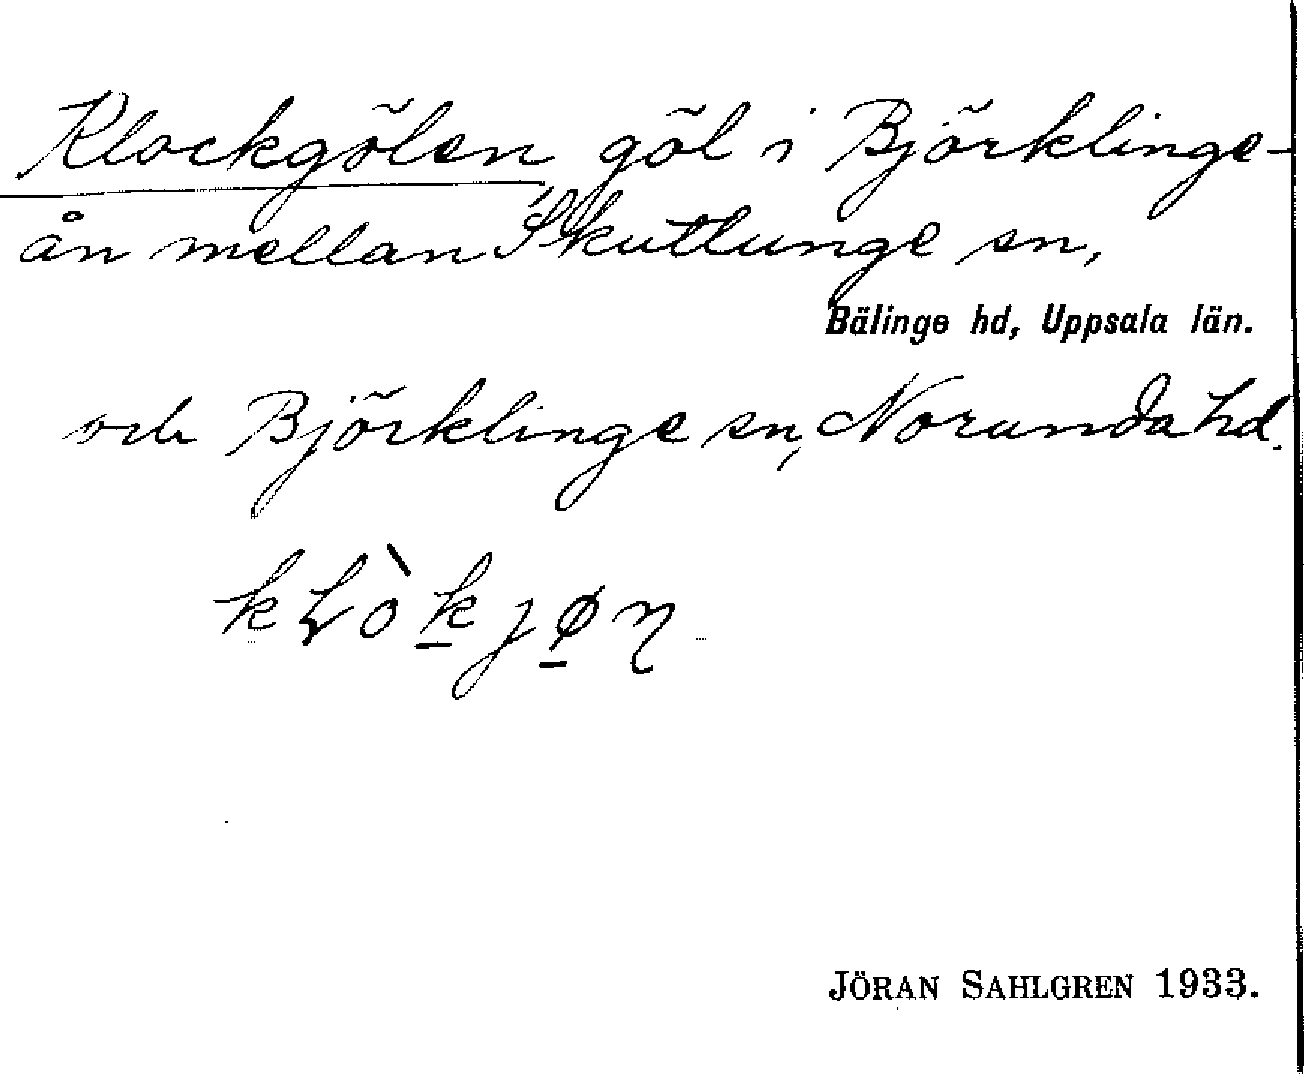 Klockgölen, göl i Björklinge-
ån mellan Skuttunge sn,
Bälinge hd, Uppsala län.
och Björklinge sn, Norunda hd.
JÖRAN SAHLGREN 1933.